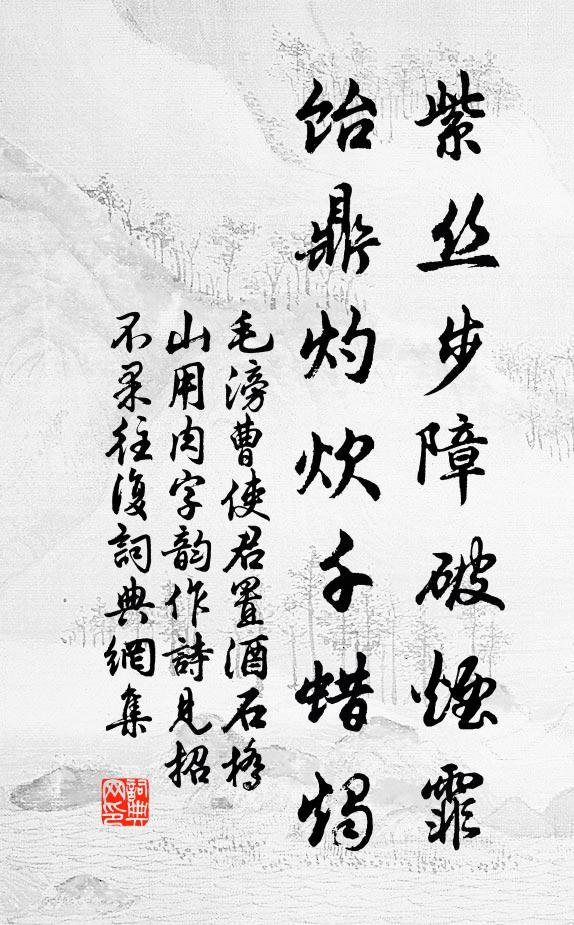 紫丝步障破烟霏
饴鼎灼炊千蜡烛
毛滂曹使君置酒石橋
山用肉字韵作詩見招
不果往復詞典網集
詞典网印